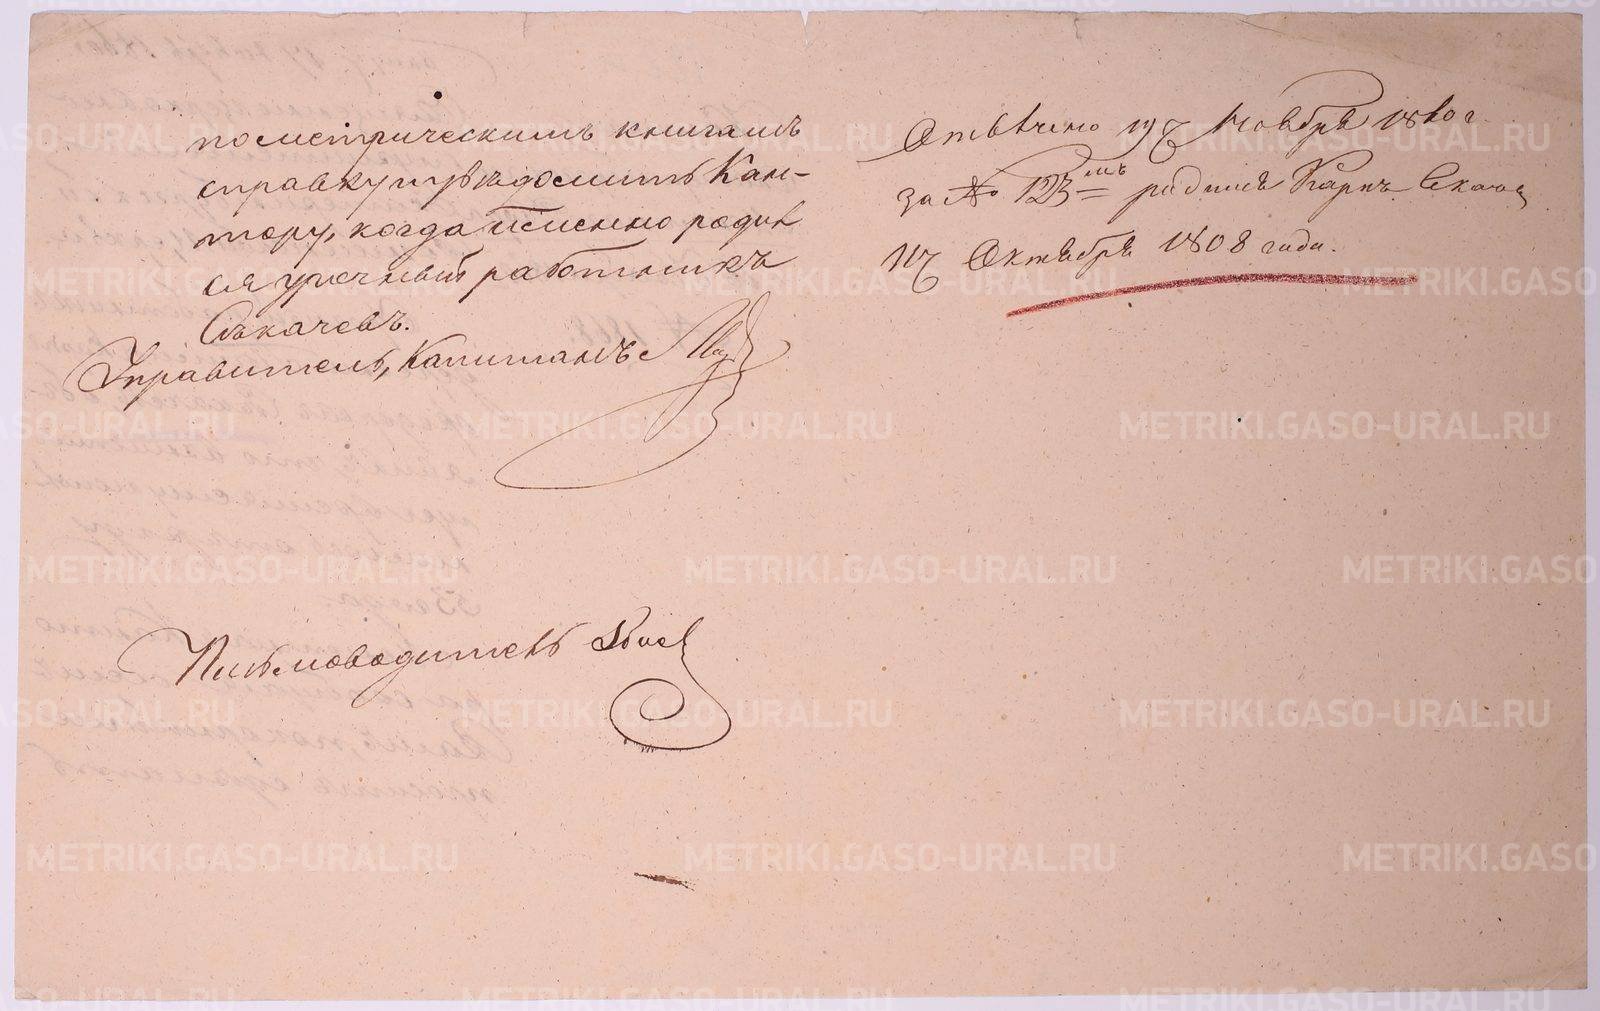 по метрическимъ книгамъ
справку и увѣдомить Кон-
тору, когда именно родил
ся урочный работникъ
Сѣкачевъ.
Управитель, Капитанъ
Письмоводитель
Отвѣчено 19 Ноября 1860 г.
за № 123мъ родился Карпъ Секачев
Октября 1808 года.
METRIKI.GASO-URAL.RU